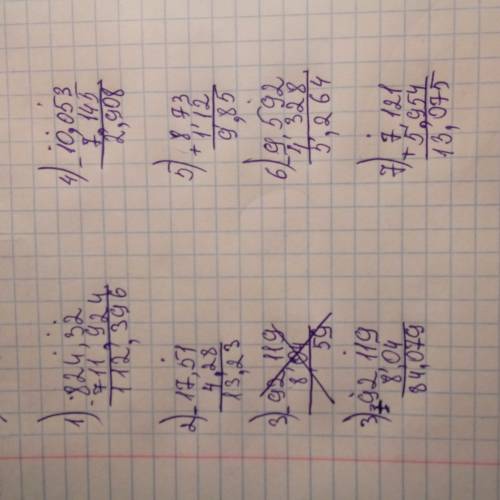 1) - 824,32
711,924
112,396
2) - 17,51
4,28
13,23
3) - 92 119
59
3) - 92 119
8,04
84,079
4) - 10,053
7,145
2,908
5) + 8 73
1 12
9,85
6) - 9,592
4,328
5,264
7) + 7 121
5,954
13,075